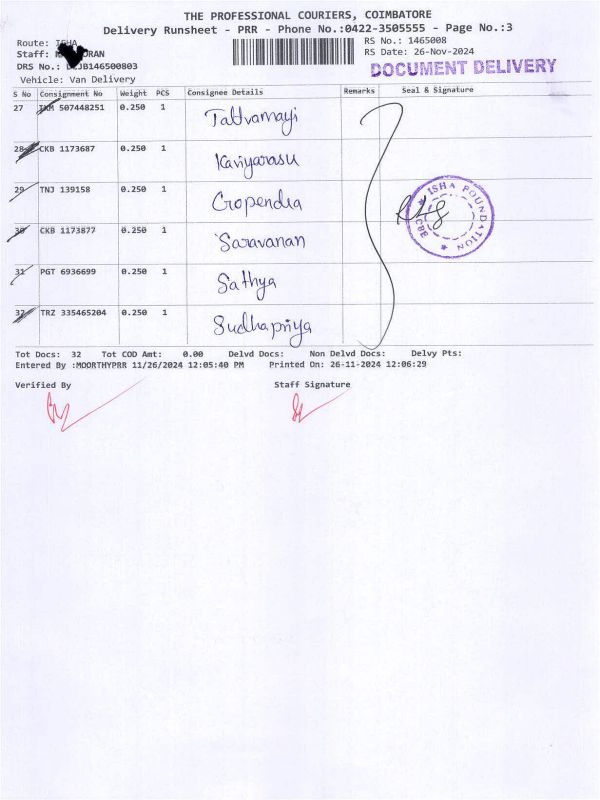 THE PROFESSIONAL COURIERS, COIMBATORE
Delivery Runsheet - PRR - Phone No.:0422-3505555 - Page No.:3
Route: ISHA
RS No.: 1465008
Staff:
RS Date: 26-Nov-2024
DRS No.: JB146500803
DOCUMENT DELIVERY
Vehicle: Van Delivery
S No Consignment No Weight PCS Consignee Details Remarks Seal & Signature
27 507448251 0.250 1 Tattvamayi
28 CKB 1173687 0.250 1 Kaviyarasu
29 TNJ 139158 0.250 1 Gopendra
30 CKB 1173877 0.250 1 Saravanan
31 PGT 6936699 0.250 1 Sathya
32 TRZ 335465204 0.250 1 Sudhapriya
ISHA FOUNDATION
CBE
Tot Docs: 32 Tot COD Amt: 0.00 Delvd Docs: Non Delvd Docs: Delvy Pts:
Entered By :MOORTHYPRR 11/26/2024 12:05:40 PM Printed On: 26-11-2024 12:06:29
Verified By Staff Signature